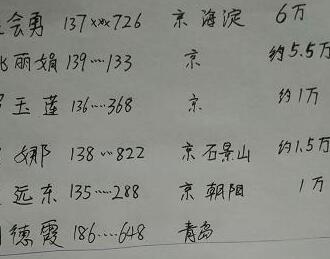 会勇 137***726 京 海淀 6万
丽娟 139...133 京 约5.5万
玉莲 136....368 京 约1万
娜 138...822 京 石景山 约1.5万
远东 135.....288 京 朝阳 1万
德霞 186....648 青岛